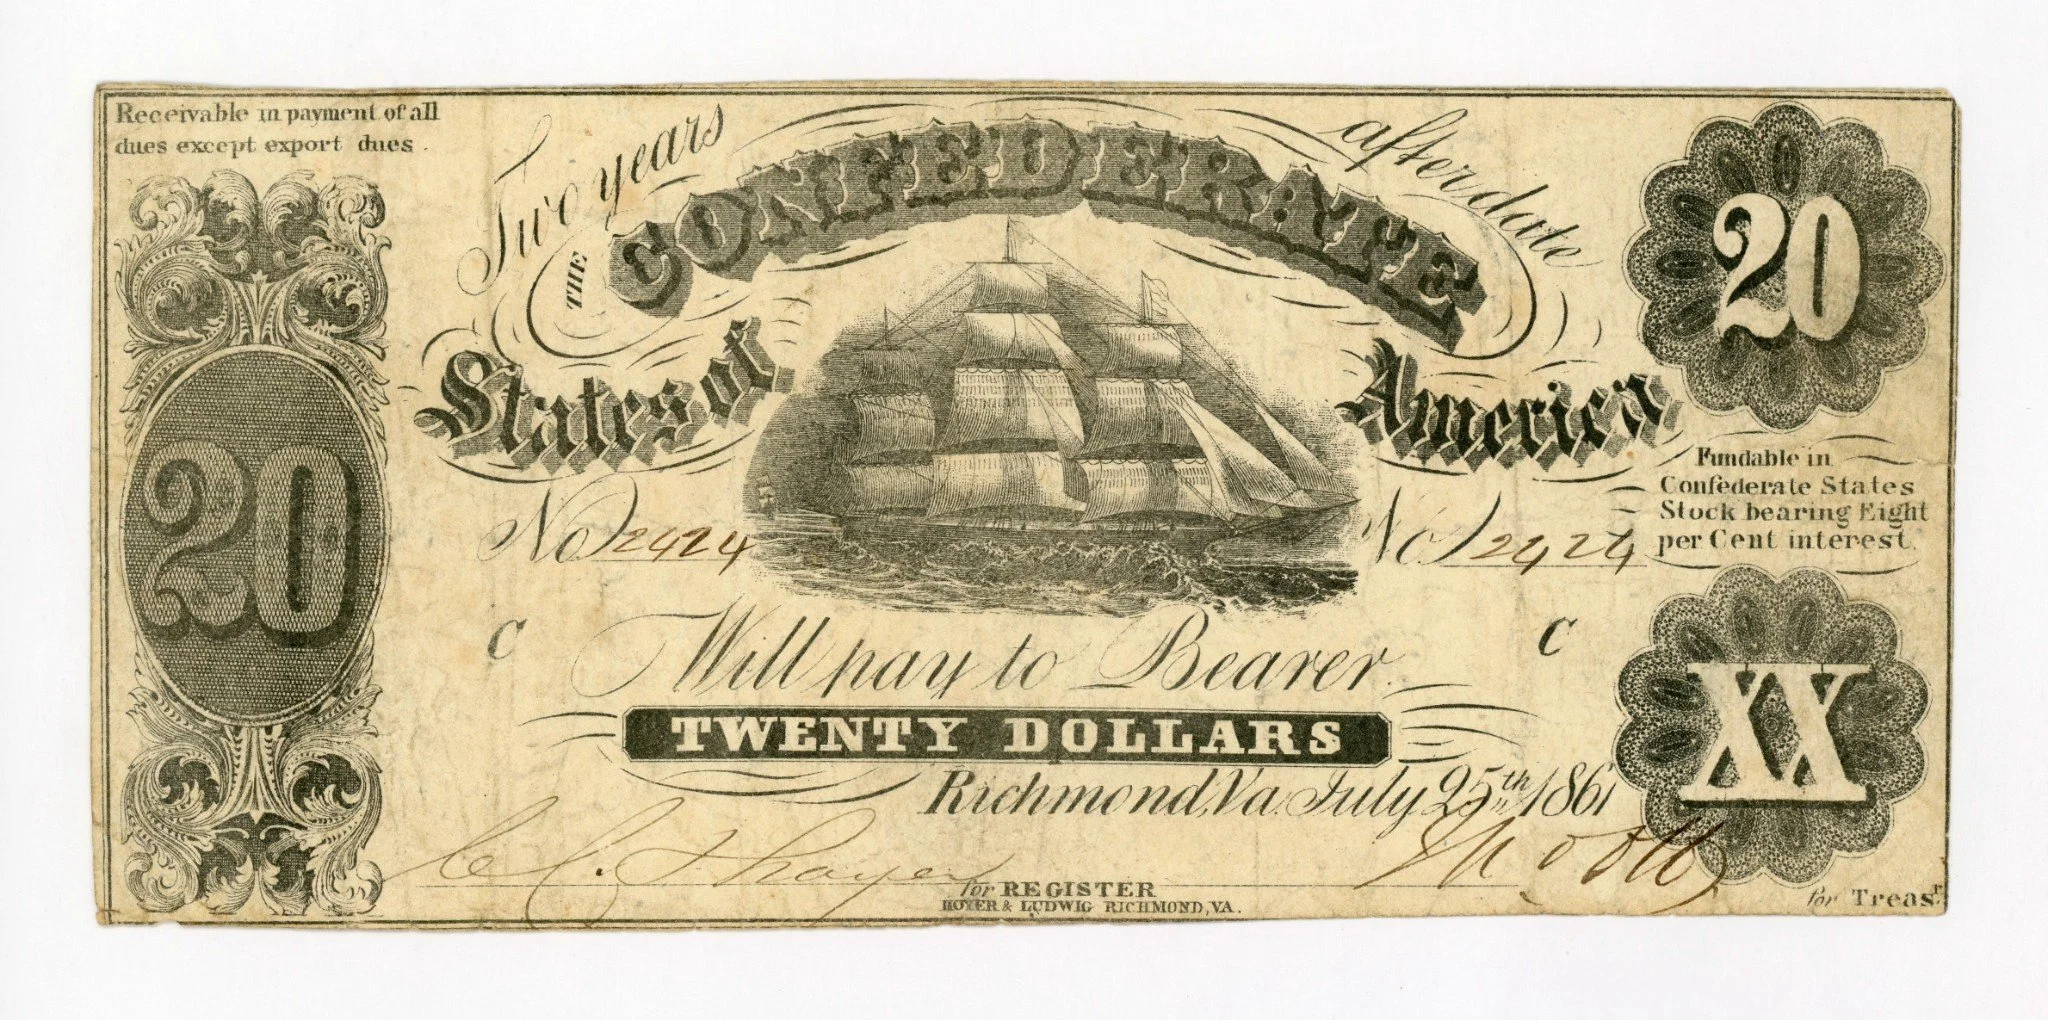 Receivable in payment of all
dues except export dues.
Two years after date
THE CONFEDERATE
States of America
20
20
Fundable in
Confederate States
Stock bearing Eight
per Cent interest.
No 2424 No 2424
C C
Will pay to Bearer
TWENTY DOLLARS
XX
Richmond, Va. July 25th, 1861
C. C. Thayer
for REGISTER
for Treasr.
HOYER & LUDWIG RICHMOND, VA.